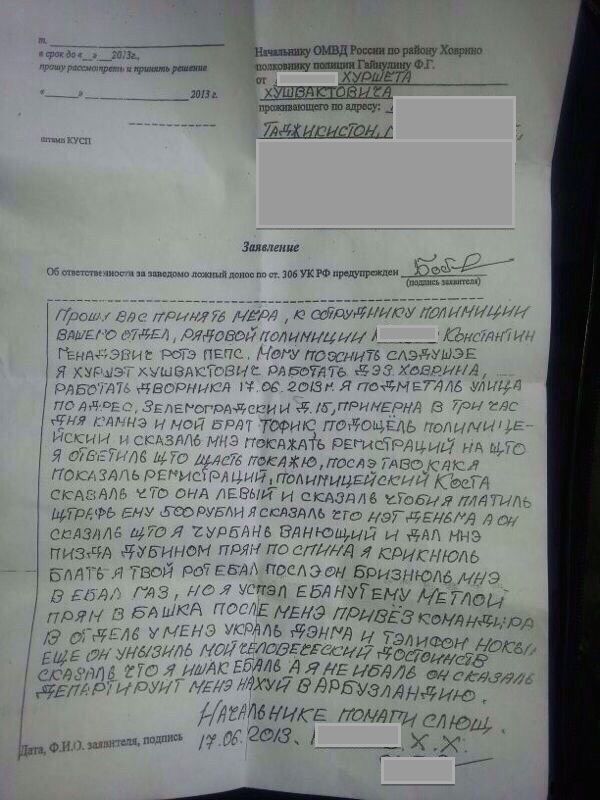 т.
в срок до «__» ___2013г.,
прошу рассмотреть и принять решение
«______» ____________________ 2013 г.
штамп КУСП
Начальнику ОМВД России по району Ховрино
полковнику полиции Гайнулину Ф.Г.
от ХУРШЕТА
ХУШВАКТОВИЧА
проживающего по адресу:
ТАДЖИКИСТОН,
Заявление
Об ответственности за заведомо ложный донос по ст. 306 УК РФ предупрежден
(подпись заявителя)
ПРОШУ ВАС ПРИНЯТЬ МЕРА, К СОТРУДНИКУ ПОЛИМИЦИИ
ВАШЕГО ОТДЕЛ, РЯДОВОЙ ПОЛИМИЦИИ КОНСТАНТИН
ГЕНАДЭВИЧ РОТЭ ПЕПС. МОМУ ПОЭНИТЬ СЛЭДУШЭЕ
Я ХУРШЭТ ХУШВАКТОВИЧ РАБОТАТЬ ДЭЗ ХОВРИНА,
РАБОТАТЬ ДВОРНИКА 17.06.2013М. Я ПОДМЕТАЛЬ УЛИЦА
ПО АДРЕС, ЗЕЛЕМОГРАДСКИИ Д.15, ПРИМЕРНА В ТРИ ЧАС
ДНЯ КАМНЭ И МОЙ БРАТ ТОФИК ПОДОЩЁЛЬ ПОЛИМИЦЕ-
ЙСКИЙ И СКАЗАЛЬ МНЭ ПОКАЖАТЬ РЕГИСТРАЦИЙ НА ЩТО
Я ОТВЕТИЛЬ ЩТО ЩАСТЬ ПОКАЖЮ, ПОСЛЭ ТАВО КАК Я
ПОКАЗАЛЬ РЕМИСТРАЦИЙ, ПОЛИМИЦЕЙСКИЙ КОСТА
СКАЗАЛЬ ЧТО ОНА ЛЕВЫЙ И СКАЗАЛЬ ЧТОБИ Я ПЛАТИЛЬ
ЩТРАФЬ ЕМУ 500 РУБЛИ Я СКАЗАЛЬ ЧТО НЭТ ДЕНЬМА А ОН
СКАЗАЛЬ ЩТО Я ЧУРБАНЬ ВАНЮЩИЙ И ДАЛ МНЭ
ПИЗДА ДУБИНОМ ПРЯМ ПО СПИНА Я КРИКНЮЛЬ
БЛАТЬ Я ТВОЙ РОТ ЕБАЛ ПОСЛЭ ОН БРИЗНЮЛЬ МНЭ
В ЕБАЛ ГАЗ, НО Я УСПЭЛ ЕБАНУТ ЕМУ МЕТЛОЙ
ПРЯМ В БАШКА ПОСЛЕ МЕНЭ ПРИВЁЗ КОМАНДИРА
В ОТДЕЛЬ У МЕНЭ УКРАЛЬ ДЭНМА И ТЭЛИФОН
ЕЩЕ ОН УНЫЗИЛЬ МОЙ ЧЕЛОВЕЧЕСКИЙ ДОСТОИНСТВ
СКАЗАЛЬ ЧТО Я ИШАК ЕБАЛЬ А Я НЕ ИБАЛЬ ОН СКАЗАЛЬ
ДЕПАРТИРУИТ МЕНЭ НАХУЙ В АРБУЗЛАНДИЮ.
НАЧАЛЬНИКЕ ПОМАГИ СЛЮЩ.
Дата, Ф.И.О. заявителя, подпись
17.06.2013. Х.Х.